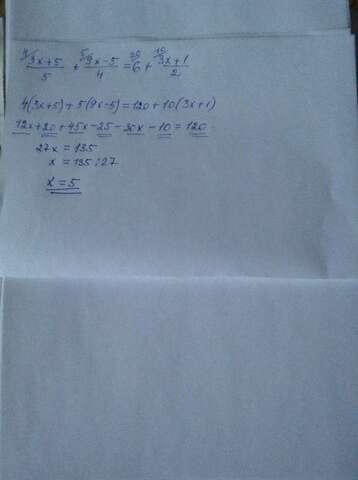 4) (3x+5)/5 + 5) (9x-5)/4 = 20) 6 + 10) (3x+1)/2
4(3x+5)+5(9x-5)=120+10(3x+1)
12x+20+45x-25-30x-10=120
27x=135
x=135:27
x=5